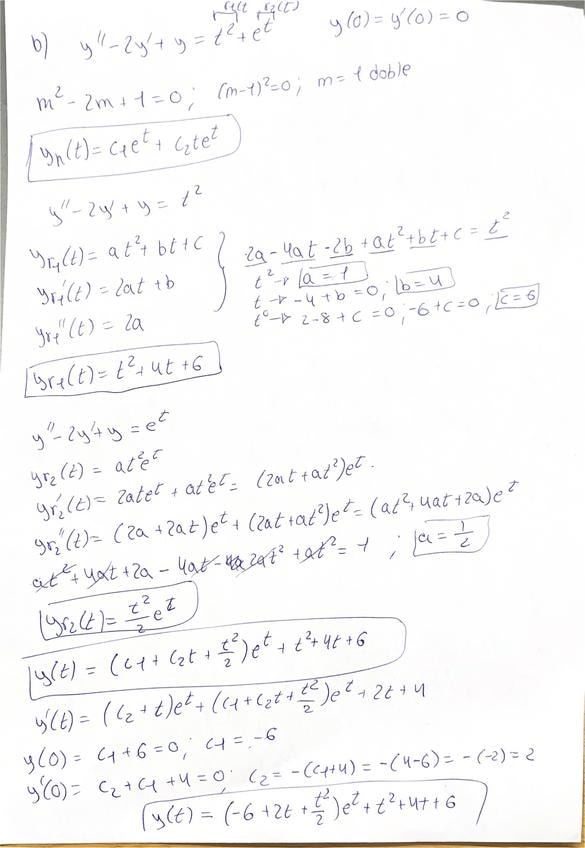 r1(t) r2(t)
b) y'' - 2y' + y = t² + e^t y(0) = y'(0) = 0
m² - 2m + 1 = 0; (m-1)² = 0; m = 1 doble
yh(t) = c1e^t + c2te^t
y'' - 2y' + y = t²
yr1(t) = at² + bt + c
2a - 4at - 2b + at² + bt + c = t²
t² → a = 1
yr1'(t) = 2at + b
t → -4 + b = 0; b = 4
yr1''(t) = 2a
t⁰ → 2 - 8 + c = 0; -6 + c = 0; c = 6
yr1(t) = t² + 4t + 6
y'' - 2y' + y = e^t
yr2(t) = at²e^t
yr2'(t) = 2ate^t + at²e^t = (2at + at²)e^t.
yr2''(t) = (2a + 2at)e^t + (2at + at²)e^t = (at² + 4at + 2a)e^t
at² + 4at + 2a - 4at - 2at² + at² = 1 ; a = 1/2
yr2(t) = t²/2 e^t
y(t) = (c1 + c2t + t²/2)e^t + t² + 4t + 6
y'(t) = (c2 + t)e^t + (c1 + c2t + t²/2)e^t + 2t + 4
y(0) = c1 + 6 = 0; c1 = -6
y'(0) = c2 + c1 + 4 = 0; c2 = -(c1+4) = -(4-6) = -(-2) = 2
y(t) = (-6 + 2t + t²/2)e^t + t² + 4t + 6